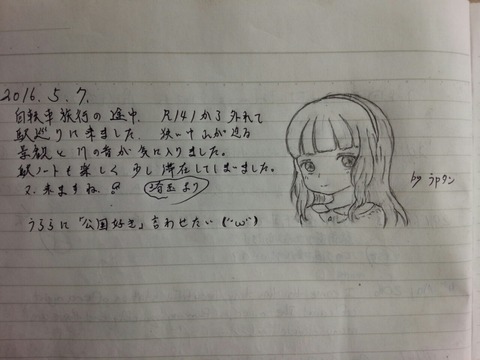 2016.5.7.
自転車旅行の途中、R141から外れて
駅巡りに来ました。狭い中山が迫る
景観と川の音が気に入りました。
駅ノートも楽しく少し滞在してしまいました。
又、来ますね 埼玉より
うららに「公国好き」言わせたい (´ω`)
by うpタン